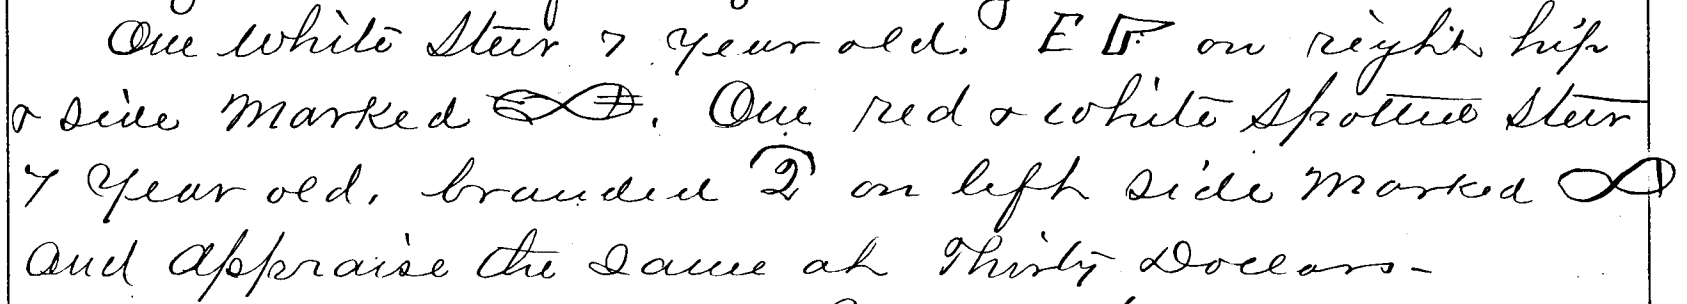 One white Steer 7 year old. E on right hip
& side Marked. One red & white Spotted Steer
7 Year old. branded 2 on left side Marked
And Appraise the Same at Thirty Dollars -